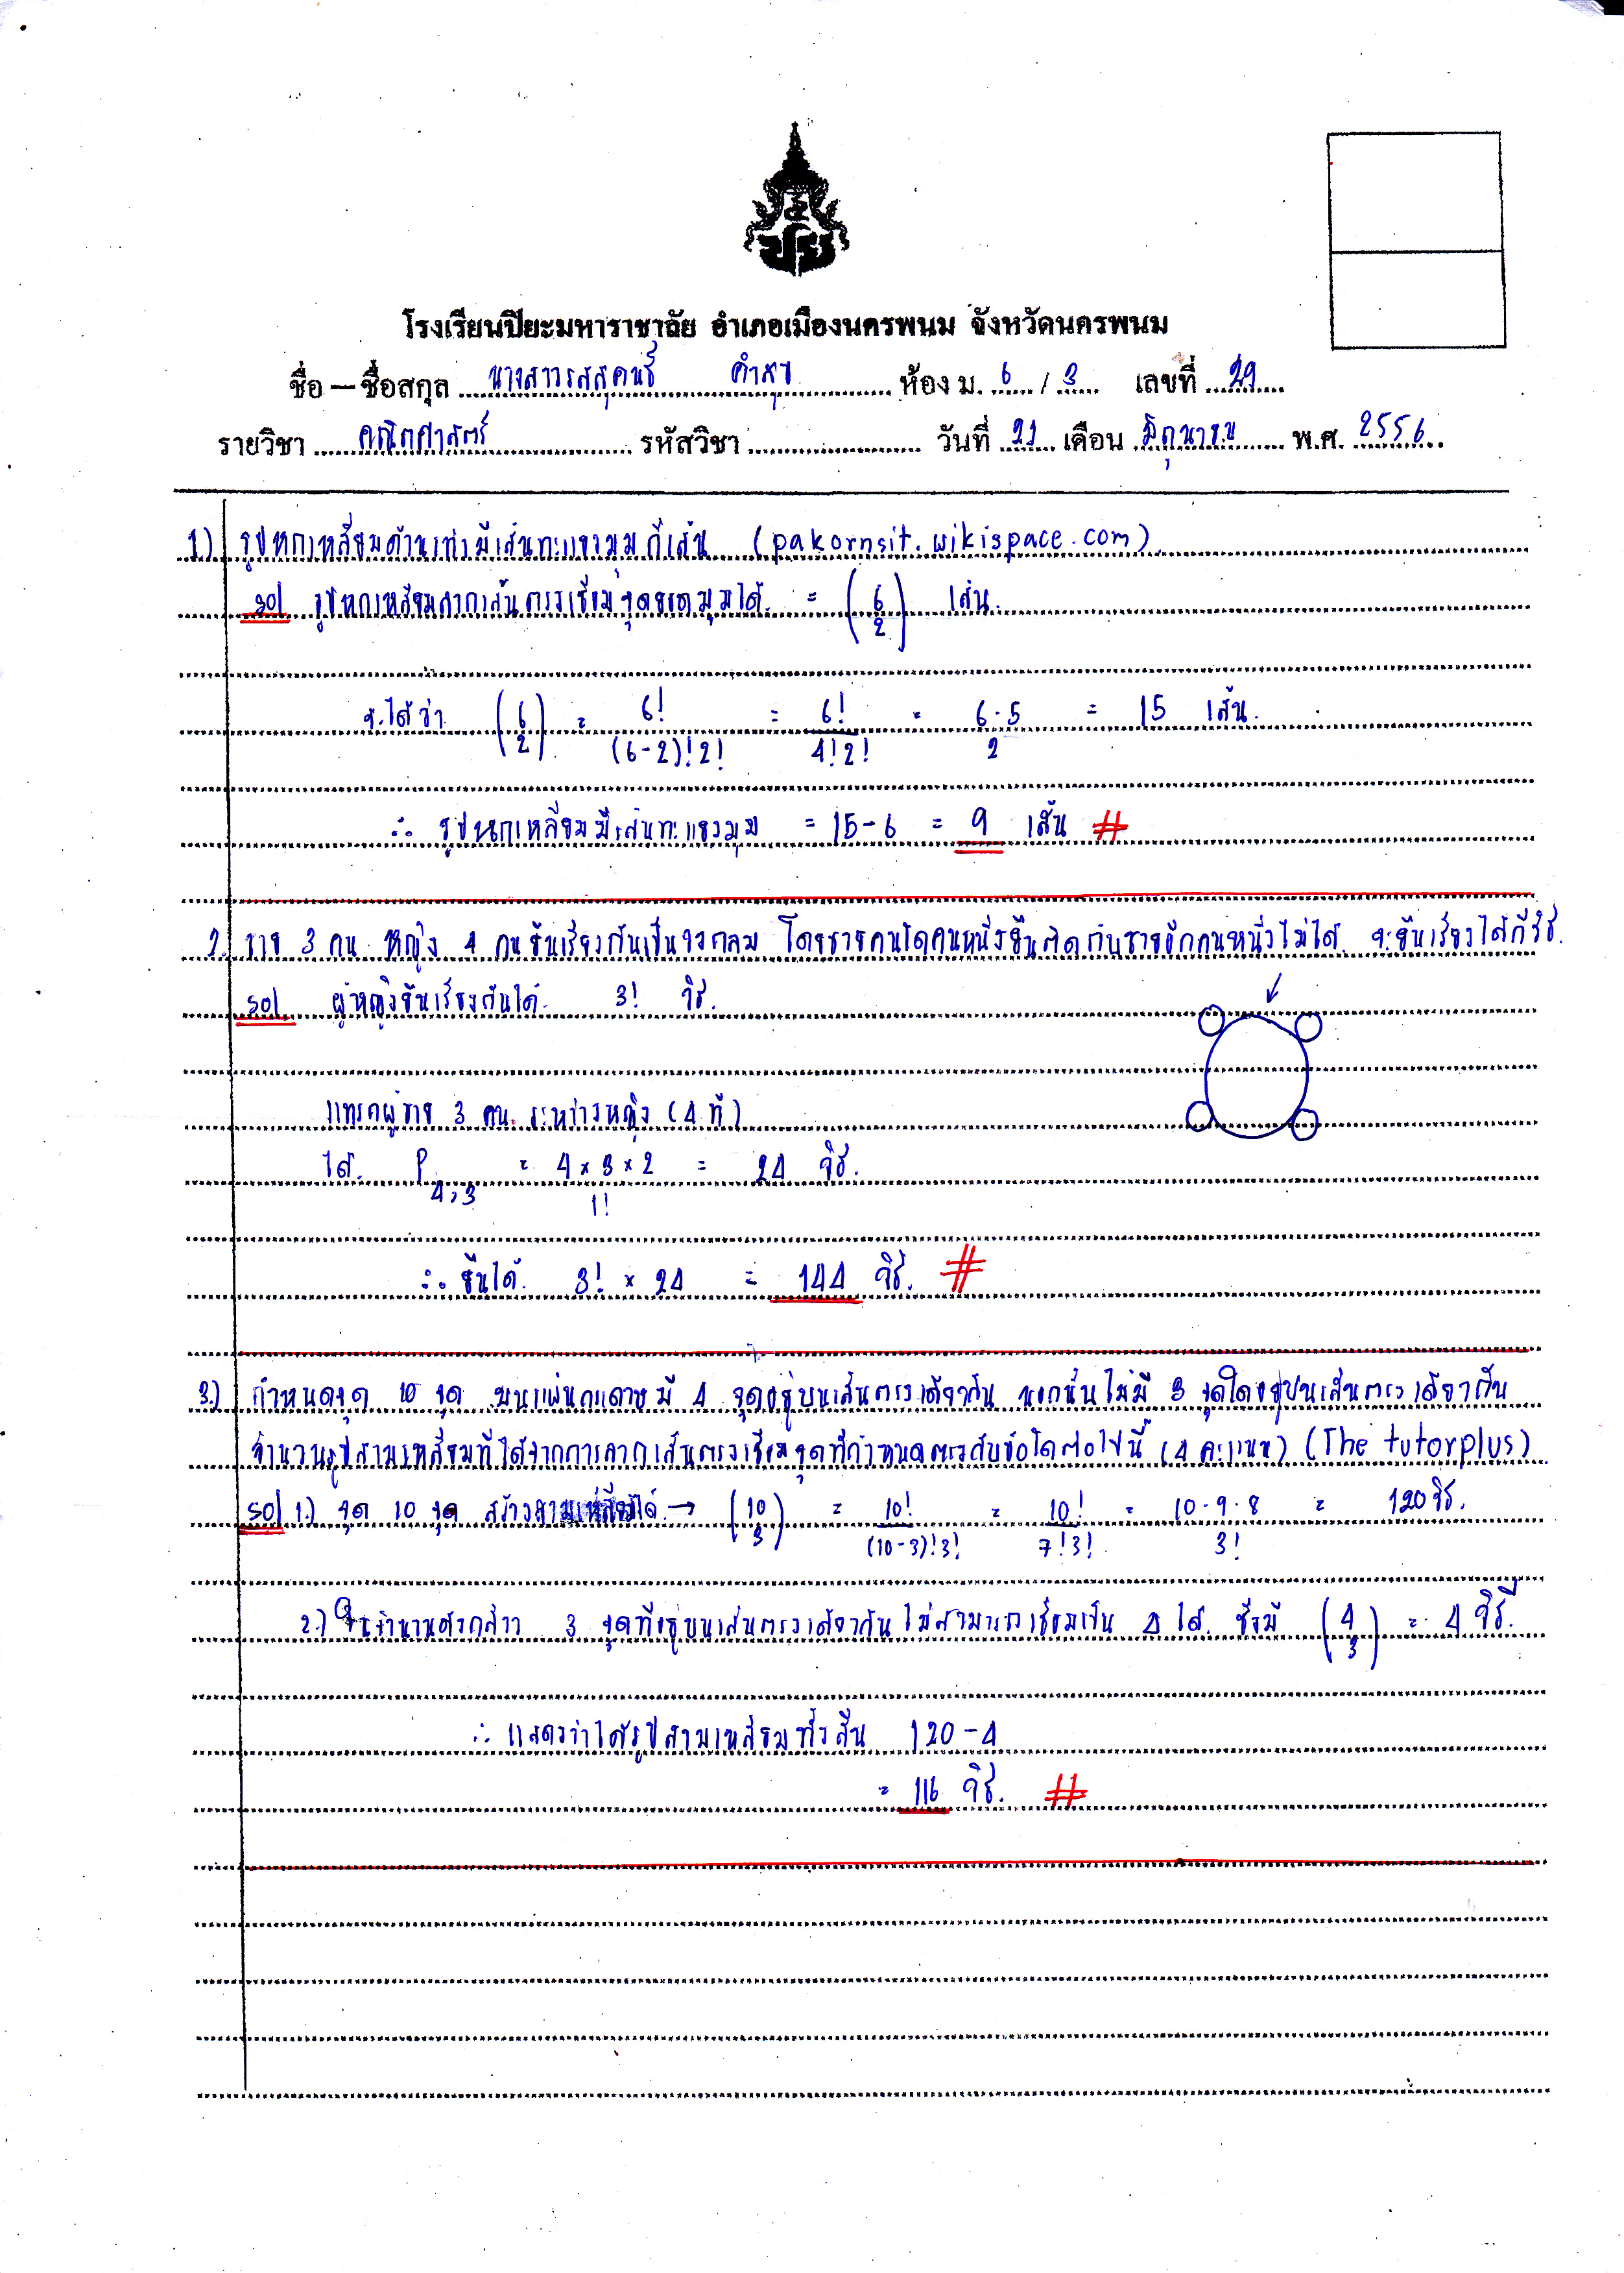 โรงเรียนปิยะมหาราชาลัย อำเภอเมืองนครพนม จังหวัดนครพนม
ชื่อ – ชื่อสกุล นางสาวรสสุคนธ์ คำสุข ห้อง ม. 6 / 3 เลขที่ 29
รายวิชา คณิตศาสตร์ รหัสวิชา วันที่ 21 เดือน มิถุนายน พ.ศ. 2556
1.) รูปหกเหลี่ยมด้านเท่ามีเส้นทะแยงมุมกี่เส้น (pakornsit.wikispace.com)
sol รูปหกเหลี่ยมลากเส้นตรงเชื่อมจุดยอดมุมได้ = (6 2) เส้น
จะได้ว่า (6 2) = 6!/(6-2)!2! = 6!/4!2! = 6·5/2 = 15 เส้น
∴ รูปหกเหลี่ยมมีเส้นทะแยงมุม = 15-6 = 9 เส้น #
2.) ชาย 3 คน หญิง 4 คน ยืนเรียงกันเป็นวงกลม โดยชายคนใดคนหนึ่งยืนติดกับชายอีกคนหนึ่งไม่ได้ จะยืนเรียงได้กี่วิธี
sol ผู้หญิงยืนเรียงกันได้ 3! วิธี
แทรกผู้ชาย 3 คน ระหว่างหญิง (4 ที่)
ได้ P4,3 = 4×3×2/1! = 24 วิธี
∴ ยืนได้ 3! × 24 = 144 วิธี #
3.) กำหนดจุด 10 จุด บนแผ่นกระดาษ มี 4 จุดอยู่บนเส้นตรงเดียวกัน นอกนั้นไม่มี 3 จุดใดอยู่บนเส้นตรงเดียวกัน
จำนวนรูปสามเหลี่ยมที่ได้จากการลากเส้นตรงเชื่อมจุดที่กำหนดตรงกับข้อใดต่อไปนี้ (4 คะแนน) (The tutorplus)
sol 1.) จุด 10 จุด สร้างสามเหลี่ยมได้ → (10 3) = 10!/(10-3)!3! = 10!/7!3! = 10·9·8/3! = 120 วิธี
2.) ในจำนวนดังกล่าว 3 จุดที่อยู่บนเส้นตรงเดียวกัน ไม่สามารถเชื่อมเป็น Δ ได้ ซึ่งมี (4 3) = 4 วิธี
∴ แสดงว่าได้รูปสามเหลี่ยมทั้งสิ้น 120-4
= 116 วิธี #